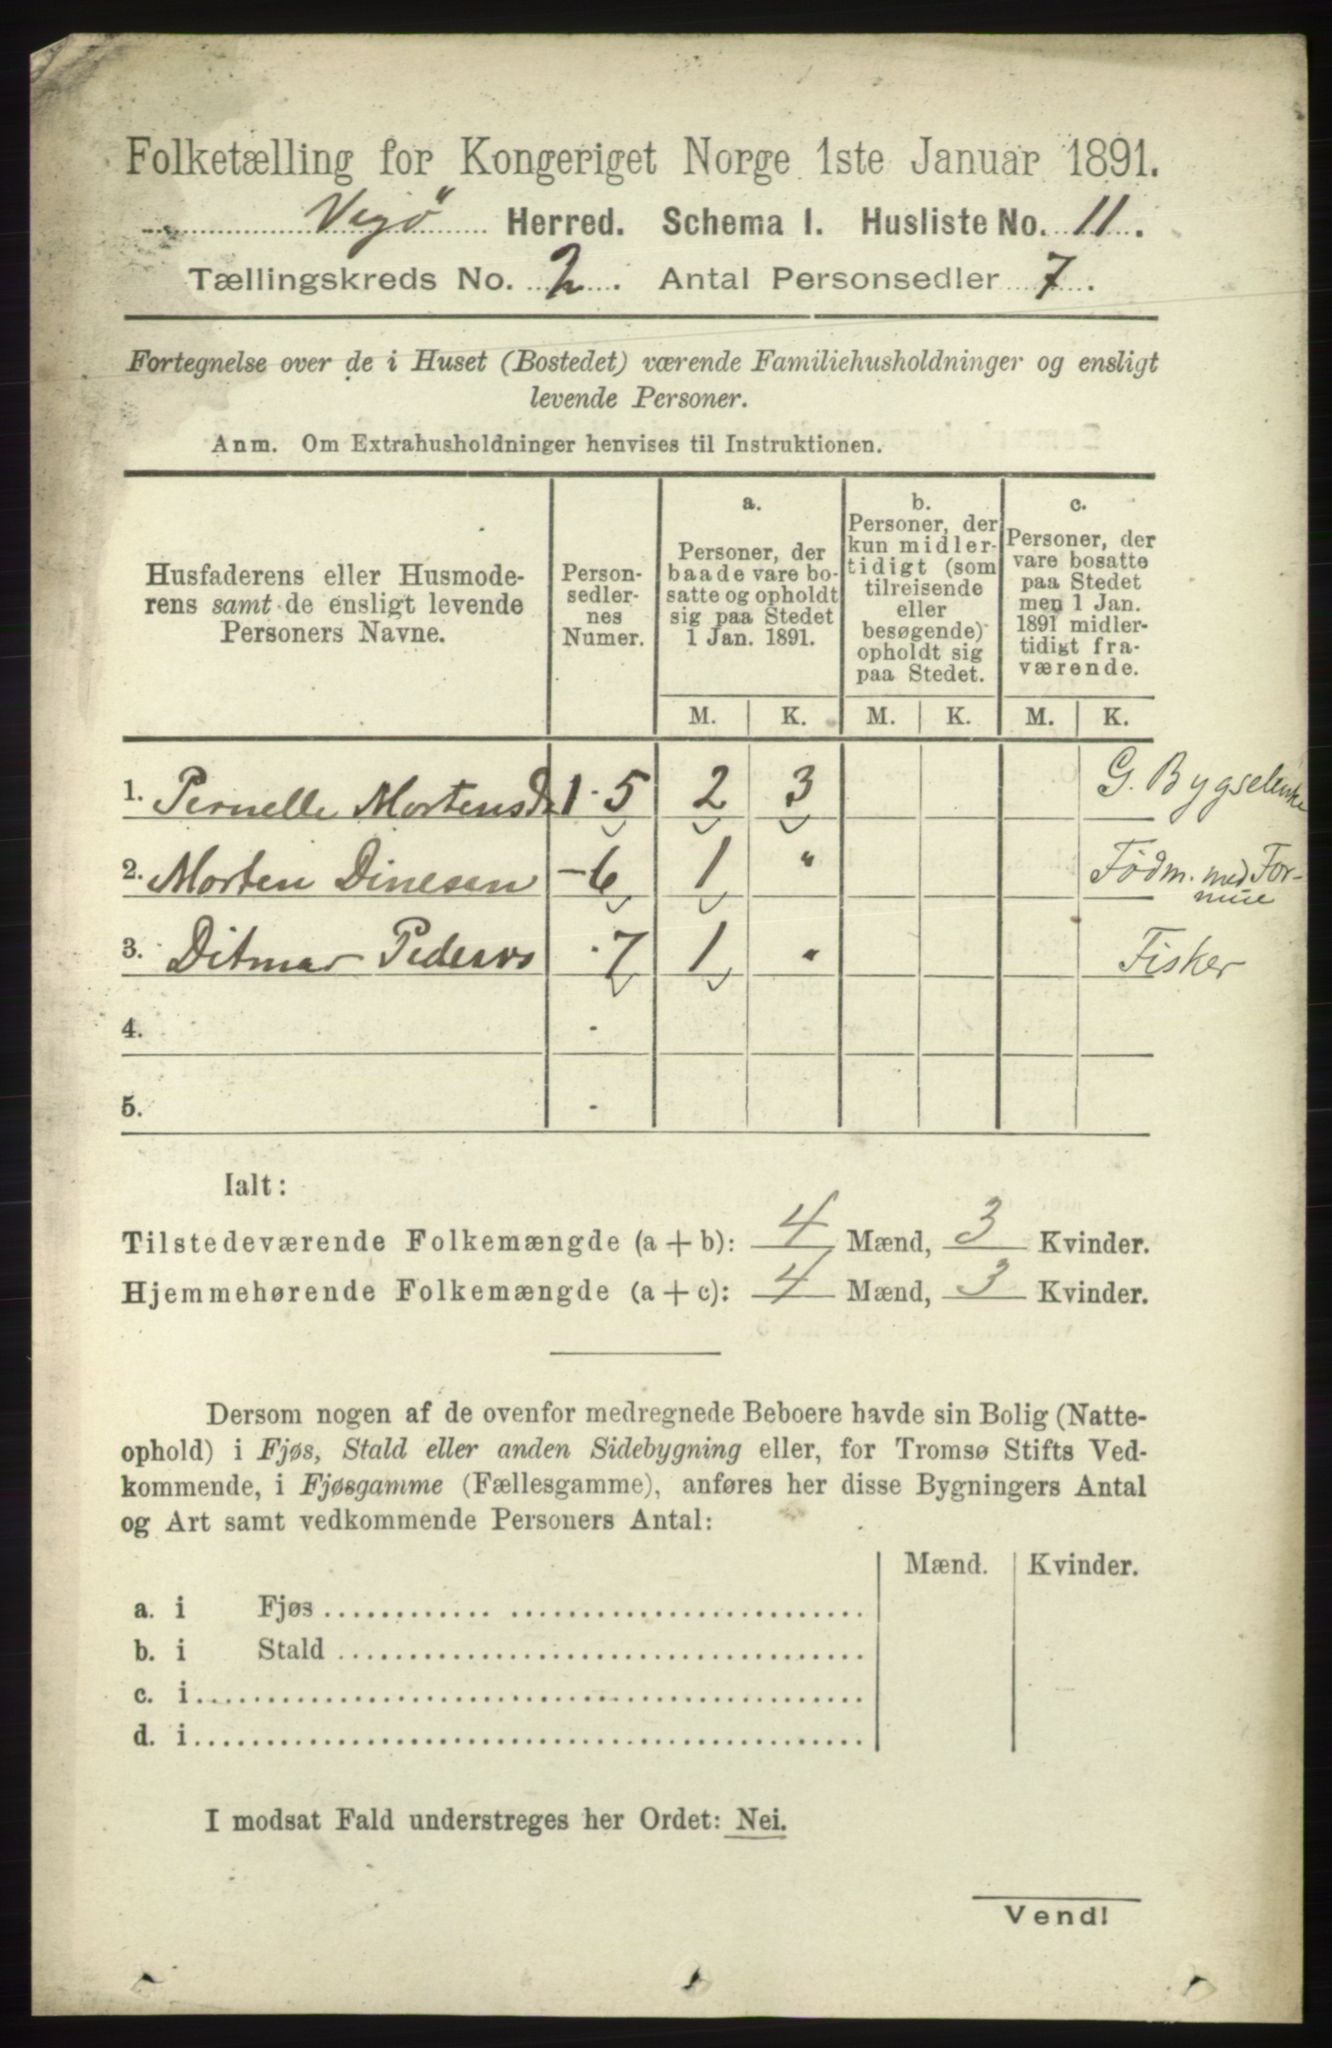 Folketælling for Kongeriget Norge 1ste Januar 1891.
Vegø Herred. Schema I. Husliste No. 11.
Tællingskreds No. 2. Antal Personsedler 7.
Fortegnelse over de i Huset (Bostedet) værende Familiehusholdninger og ensligt
levende Personer.
Anm. Om Extrahusholdninger henvises til Instruktionen.
Husfaderens eller Husmode-
rens samt de ensligt levende
Personers Navne.
Person-
sedler-
nes
Numer.
a.
Personer, der
baade vare bo-
satte og opholdt
sig paa Stedet
1 Jan. 1891.
b.
Personer, der
kun midler-
tidigt (som
tilreisende
eller
besøgende)
opholdt sig
paa Stedet.
c.
Personer, der
vare bosatte
paa Stedet
men 1 Jan.
1891 midler-
tidigt fra-
værende.
M. K. M. K. M. K.
1. Pernelle Mortensd. 1-5 2 3 G. Bygselenke
2. Morten Dinesen -6 1 " Fødm. med For-
mue
3. Ditmar Peders 7 1 " Fisker
4. -
5. -
Ialt:
Tilstedeværende Folkemængde (a + b): 4 Mænd, 3 Kvinder.
Hjemmehørende Folkemængde (a + c): 4 Mænd, 3 Kvinder.
Dersom nogen af de ovenfor medregnede Beboere havde sin Bolig (Natte-
ophold) i Fjøs, Stald eller anden Sidebygning eller, for Tromsø Stifts Ved-
kommende, i Fjøsgamme (Fællesgamme), anføres her disse Bygningers Antal
og Art samt vedkommende Personers Antal:
Mænd. Kvinder.
a. i Fjøs
b. i Stald
c. i
d. i
I modsat Fald understreges her Ordet: Nei.
Vend!